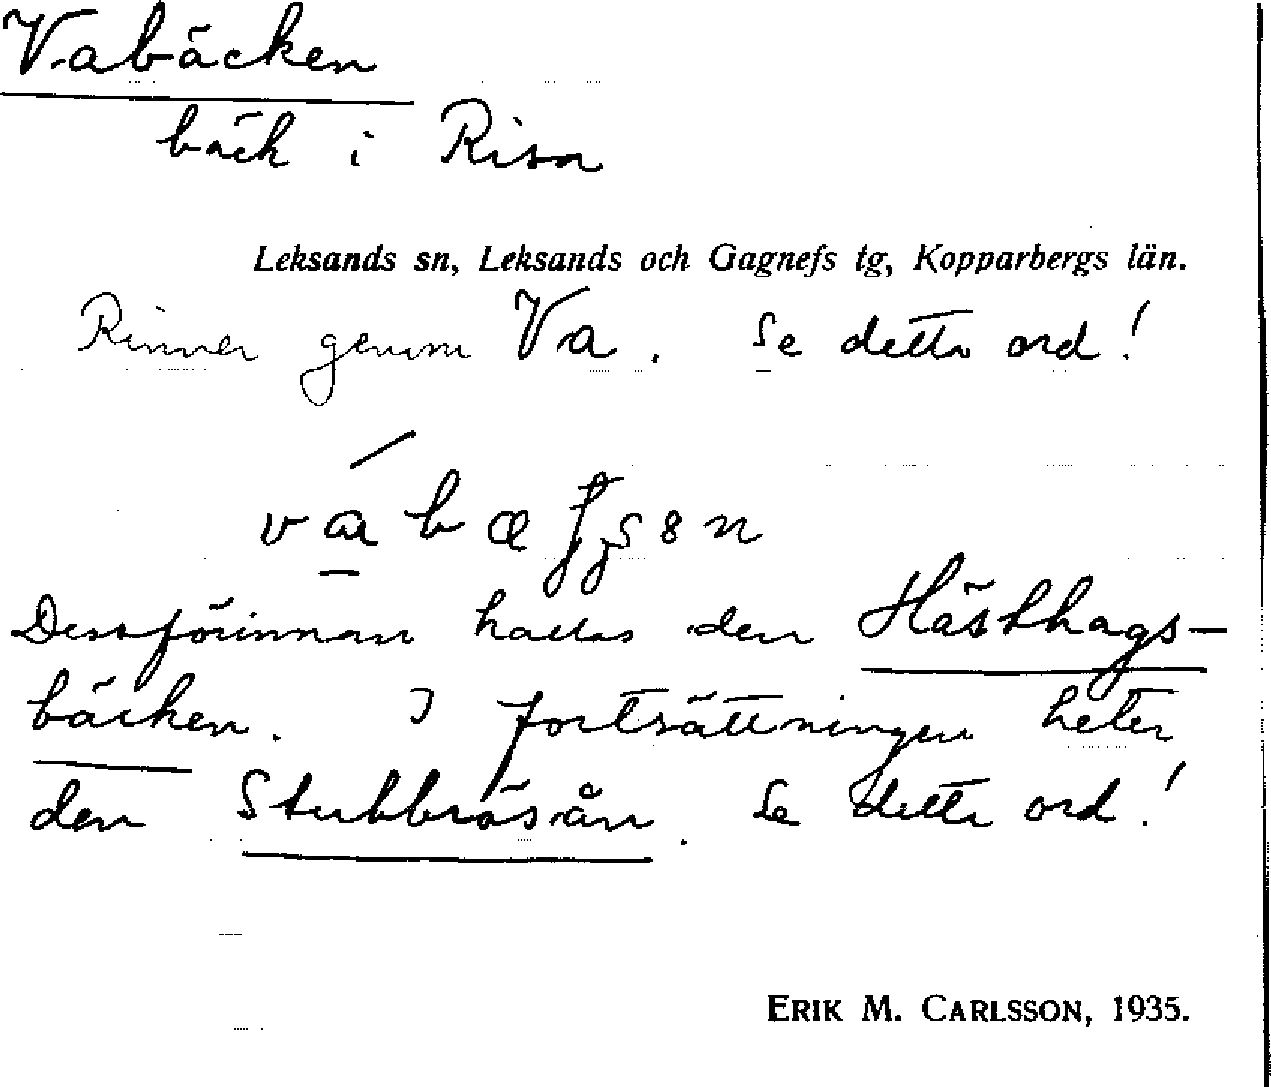 Vabäcken
bäck i Risa
Leksands sn, Leksands och Gagnefs tg, Kopparbergs län.
Rinner genom Va. Se detta ord!
Dessförinnan kallas den Hästhags-
bäcken. I fortsättningen heter
den Stubbrösån. Se detta ord!
ERIK M. CARLSSON, 1935.